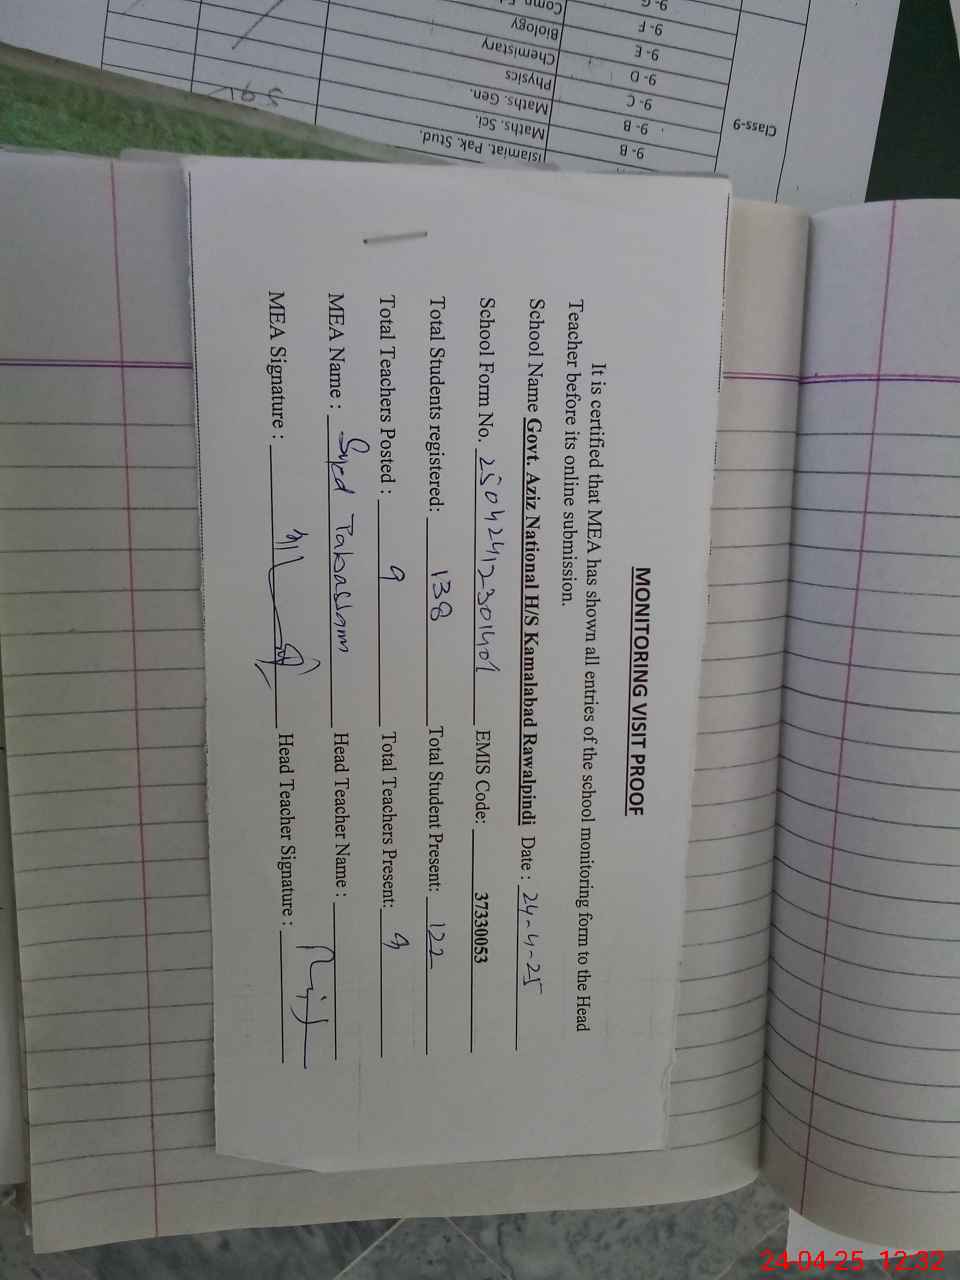 MONITORING VISIT PROOF
It is certified that MEA has shown all entries of the school monitoring form to the Head
Teacher before its online submission.
School Name Govt. Aziz National H/S Kamalabad Rawalpindi Date : 24-4-25
School Form No. EMIS Code: 37330053
Total Students registered: 138 Total Student Present: 122
Total Teachers Posted : 9 Total Teachers Present: 9
MEA Name : Syed Tabassam Head Teacher Name :
MEA Signature : Head Teacher Signature :
Class-9
9- B Islamiat. Pak. Stud.
9- B Maths. Sci.
9- C Maths. Gen.
9- D Physics
9- E Chemistary
9- F Biology
24-04-25 12:32